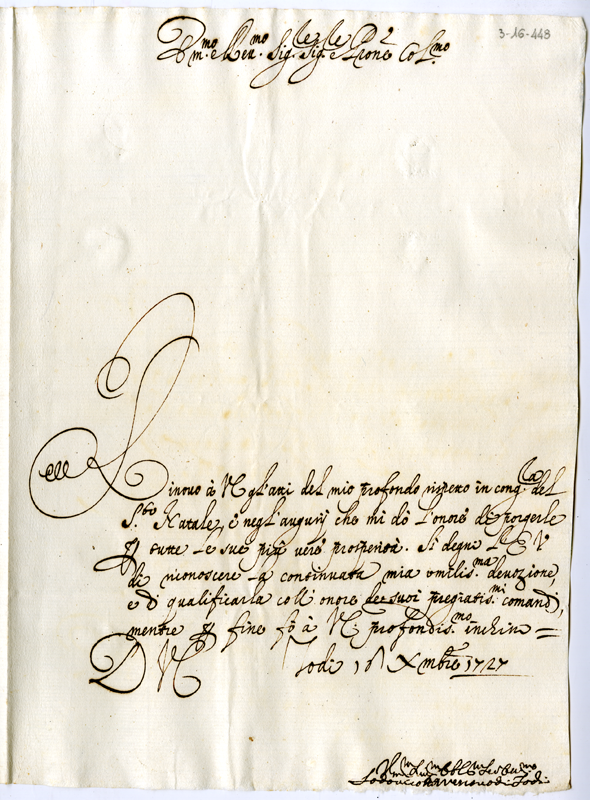 3-16-448
Em.mo e Rev.mo Sig.re Sig.re e P.rone Col.mo
Rinovo à V E gl'atti del mio profondo rispetto in cong.ra del
S.to Natale, e negl'augurij che mi dò l'onore di porgerle
tutte le sue più vere prosperità. Si degni l'E V
di riconoscere la continuata mia umilis.ma devozione,
e di qualificarla coll'onore de suoi pregiatis.mi comandi,
mentre per fine fò à V E profondis.mo inchino =
D V E Todi 16 Xmbre 1727
Lodovico Vescovo di Todi